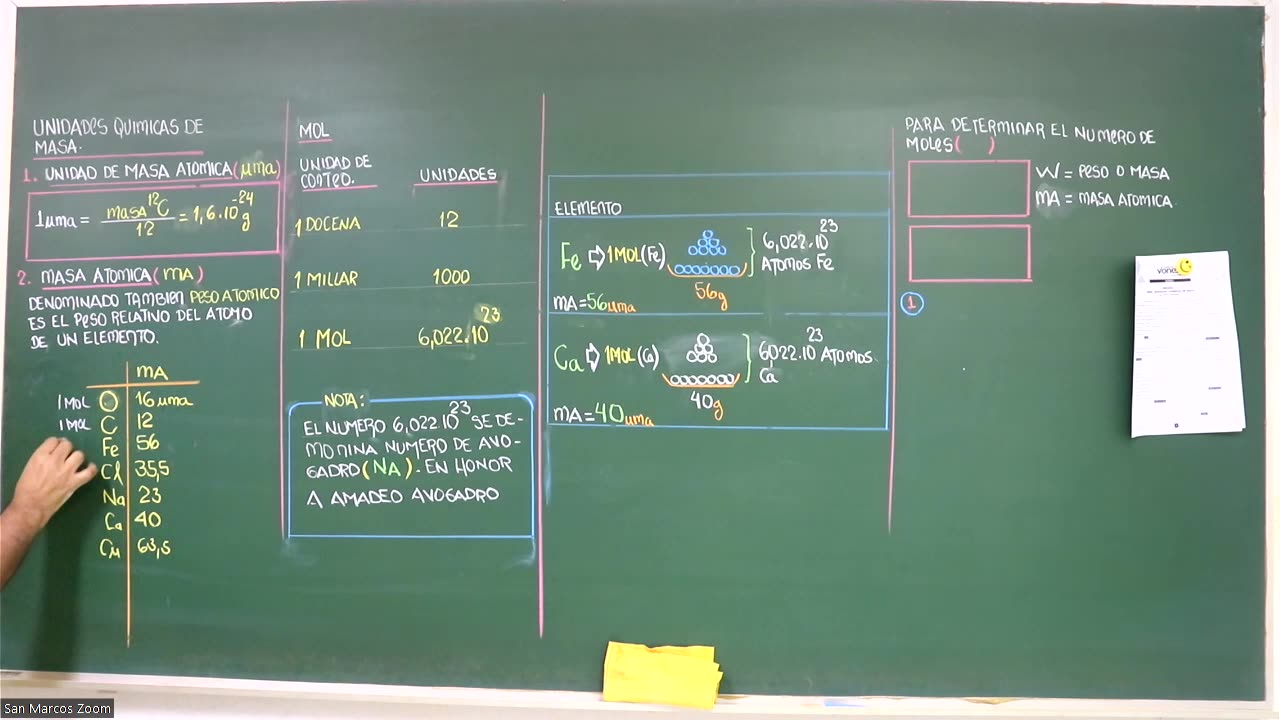 UNIDADES QUIMICAS DE
MASA.
1. UNIDAD DE MASA ATOMICA (µma)
1uma = masa ¹²C / 12 = 1,6.10⁻²⁴ g
2. MASA ATOMICA (mA)
DENOMINADO TAMBIEN PESO ATOMICO
ES EL PESO RELATIVO DEL ATOMO
DE UN ELEMENTO.
mA
1 MOL O 16 uma
1 MOL C 12
Fe 56
Cl 35,5
Na 23
Ca 40
Cu 63,5
MOL
UNIDAD DE
CONTEO.
UNIDADES
1 DOCENA 12
1 MILLAR 1000
1 MOL 6,022.10²³
NOTA:
EL NUMERO 6,022.10²³ SE DE-
MONINA NUMERO DE AVO-
GADRO (NA). EN HONOR
A AMADEO AVOGADRO
ELEMENTO
Fe ⇨ 1MOL (Fe) 6,022.10²³
ATOMOS Fe
56g
mA = 56uma
Ca ⇨ 1MOL (Ca) 6022.10²³ ATOMOS
Ca
40g
mA = 40uma
PARA DETERMINAR EL NUMERO DE
MOLES ( )
W = PESO O MASA
mA = MASA ATOMICA
1
San Marcos Zoom